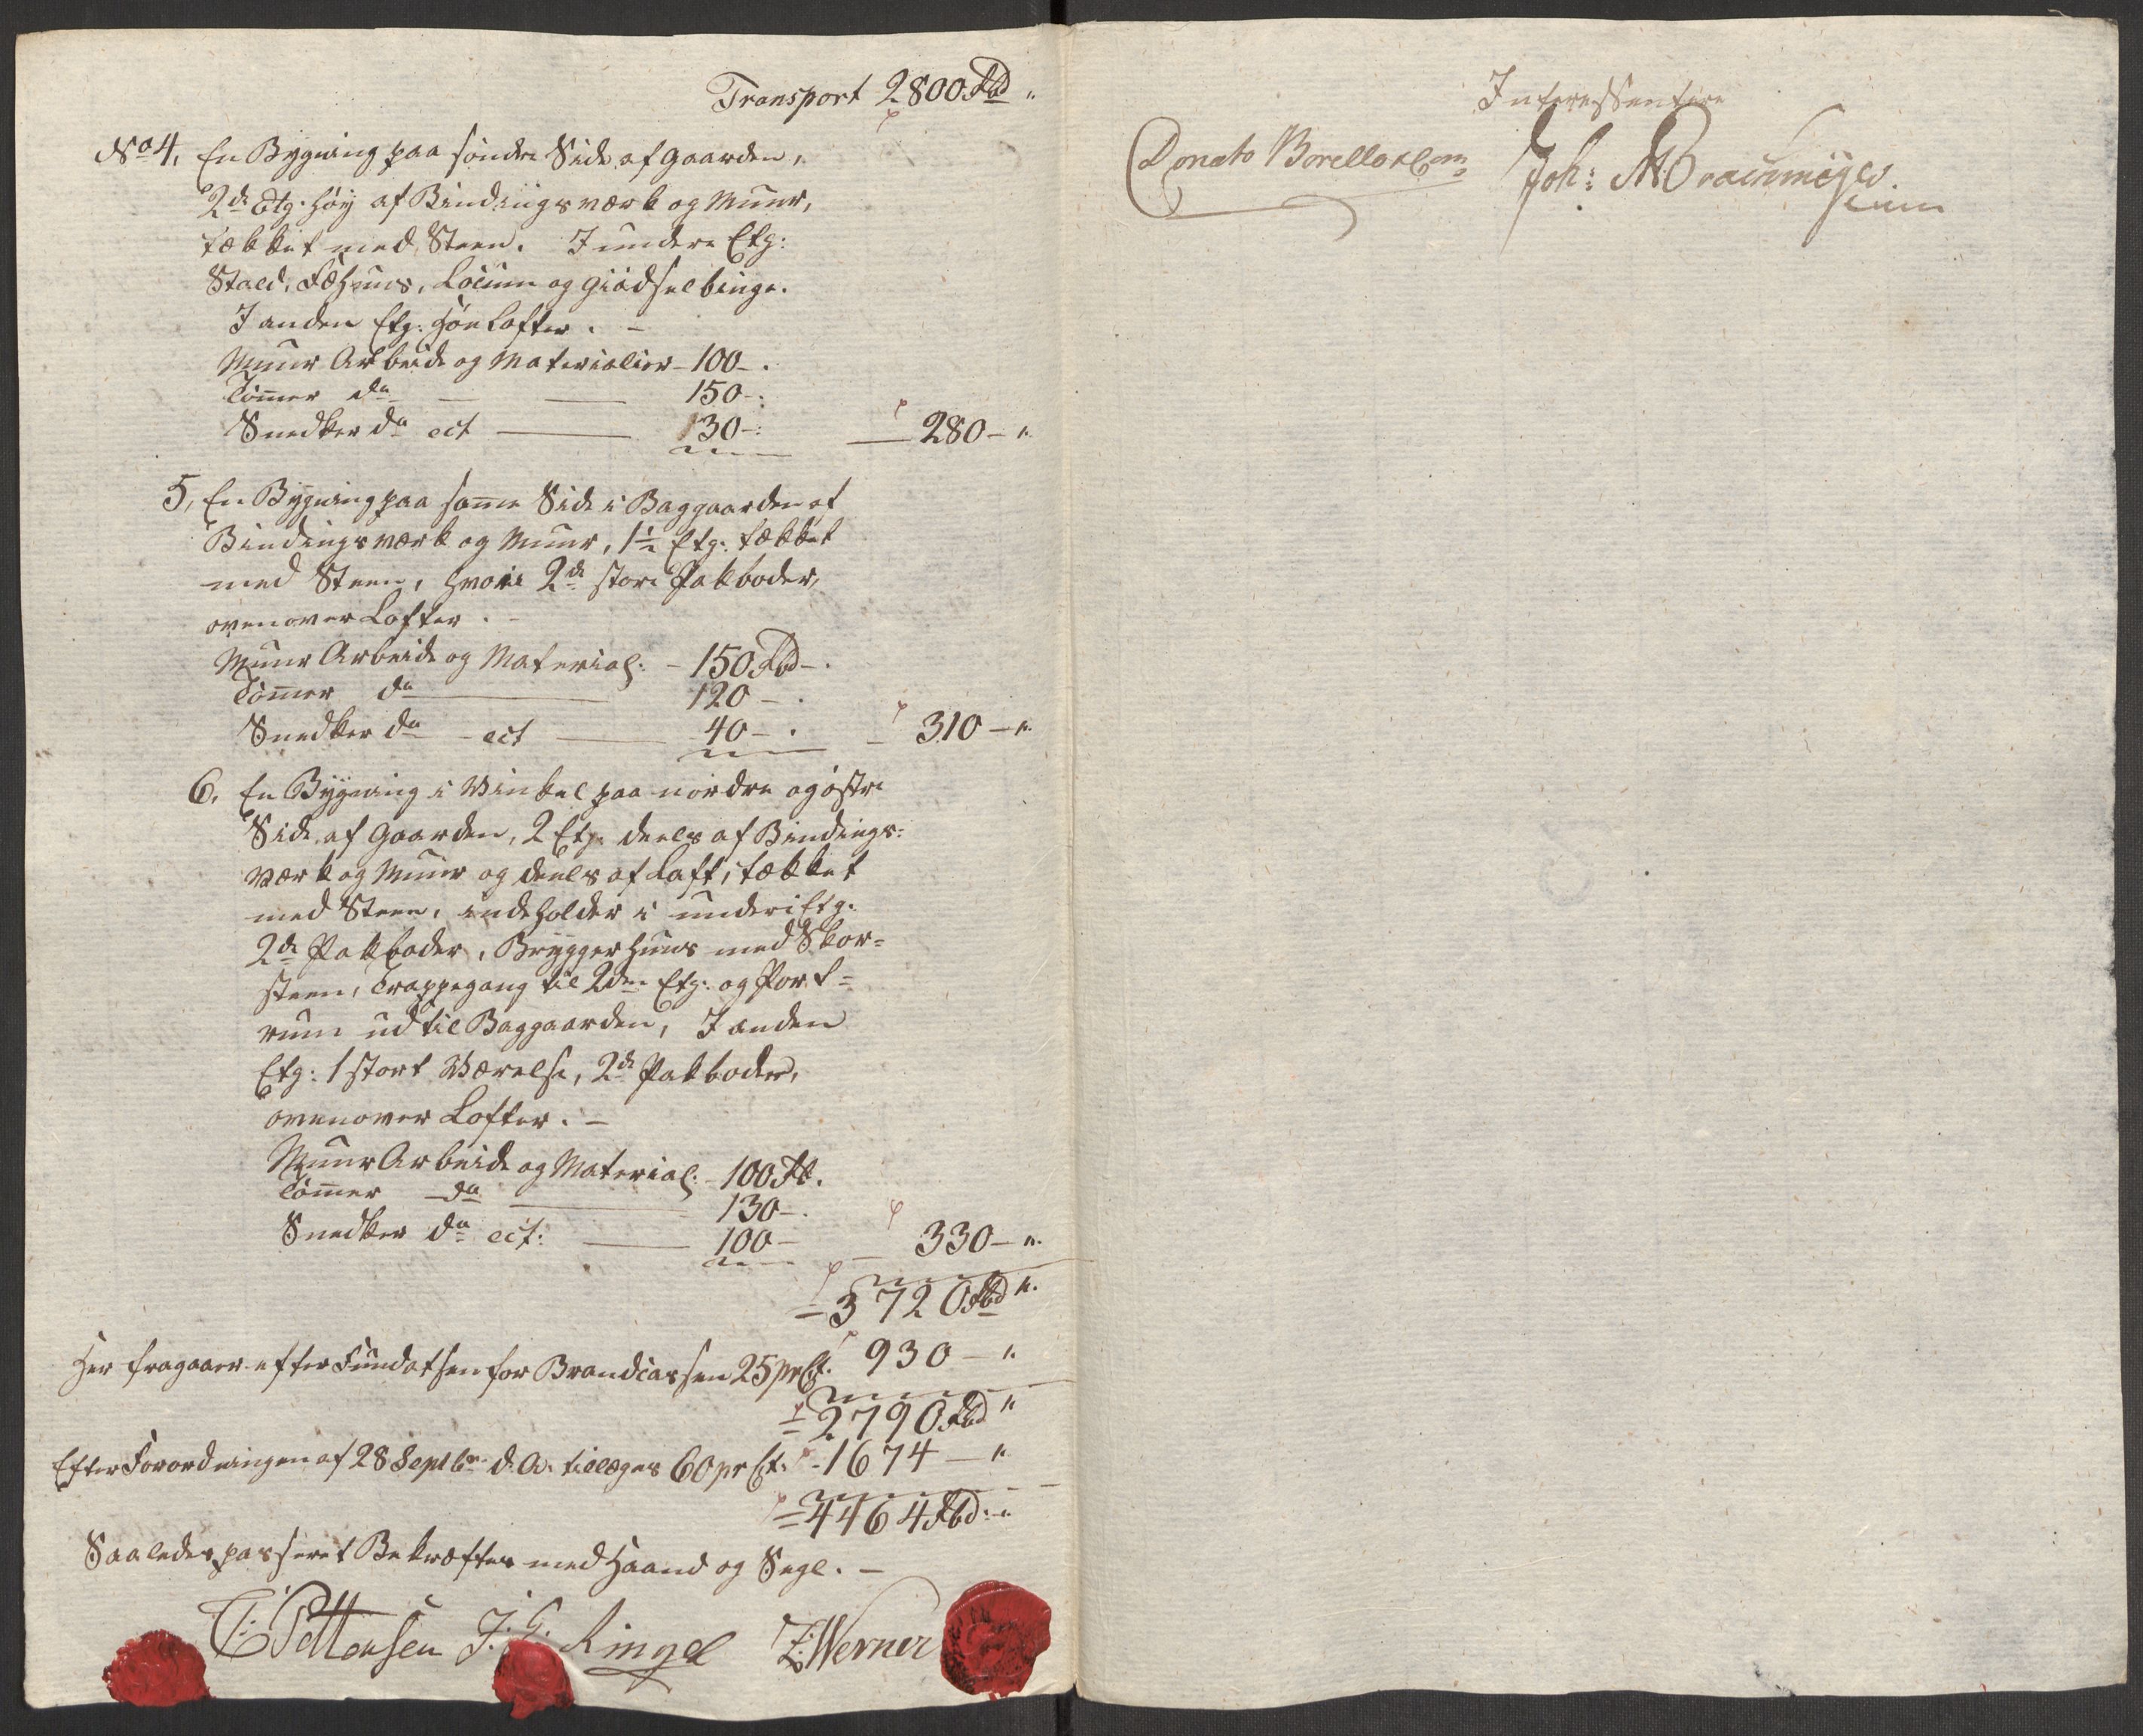 Transport 2800 Rbd "
No 4, En Bygning paa søndre Side af Gaarden,
2de Etg. høy af Bindingsværk og Muur,
tækket med Steen. I undere Etg:
Stald, Fæhuus, Locum og Giødselbinge.
I anden Etg: Høe Lofter. -
Muur Arbeide og Materialier - 100 - .
Tømer do — — 150 - :
Snedker do ect — 130 - : — 280 - "
5, En Bygning paa same Side i Baggaarden af
Bindingsværk og Muur, 1½ Etg: tækket
med Steen, hvori 2de store Pakboder,
ovenover Lofter. -
Muur Arbeide og Material: - 150 Rbd - .
Tømer do — 120 - .
Snedker do - ect — 40 - . — 310 - "
6, En Bygning i Vinkel paa nordre og østre
Side af Gaarden, 2 Etg. deels af Bindings-
værk og Muur og deels af Laft, tækket
med Steen, indeholder i undere Etg.
2de Pakboder, Bryggerhuus med Skor-
steen, Trappegang til 2den Etg: og Port-
rum ud til Baggaarden, I anden
Etg: 1 stort Værelse, 2de Pakboder,
ovenover Lofter. -
Muur Arbeide og Material: - 100 Rb.
Tømer - do — 130 - .
Snedker do ect: — 100 - — 330 - "
- 3720 Rbd "
Her fragaaer efter Fundatsen for Brandcassen 25 pr Ct. 930 - "
2790 Rbd "
Efter Forordningen af 28 Septbr d: A: tillæges 60 pr Ct: - 1674 - "
4464 Rbd: "
Saaledes passeret Bekræftes med Haand og Segl. -
Pettersen J: G: Ringel Z: Werner
Interessentere
Donato Borello & Com Joh: